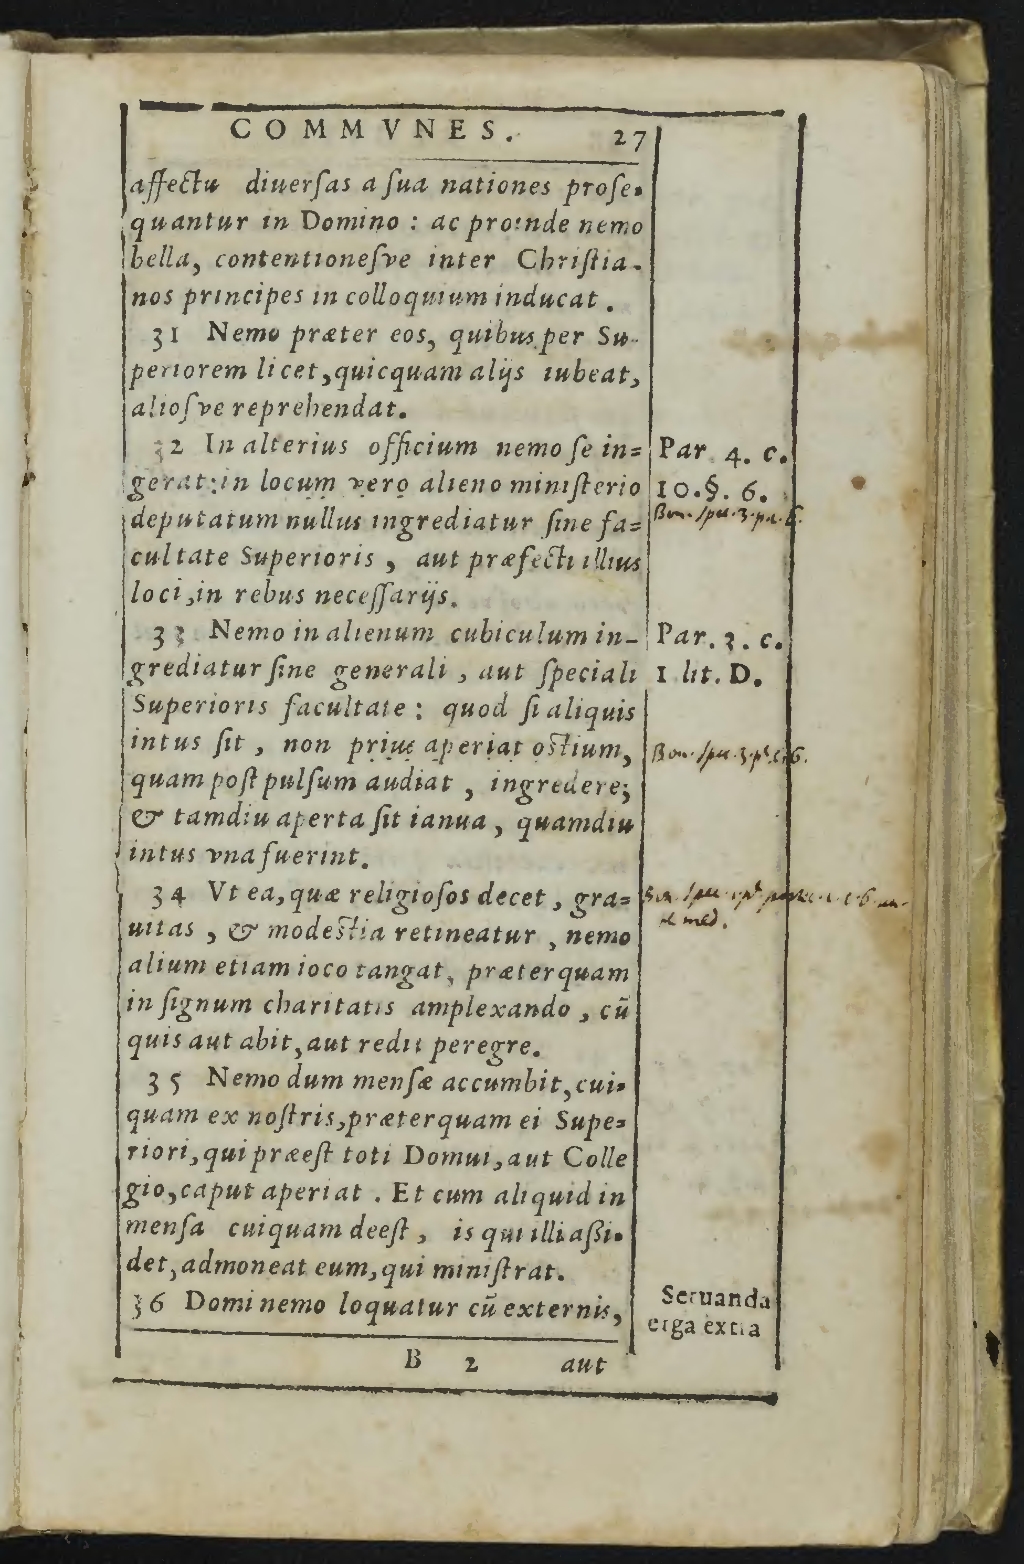 COMMVNES. 27
affectu diuerſas a ſua nationes proſe-
quantur in Domino : ac proinde nemo
bella, contentioneſve inter Chriſtia-
nos principes in colloquium inducat.
31 Nemo præter eos, quibus per Su-
periorem licet, quicquam alijs iubeat,
alioſve reprehendat.
32 In alterius officium nemo ſe in=
Par. 4. c.
gerat: in locum vero alieno miniſterio
10. §. 6.
deputatum nullus ingrediatur ſine fa=
Bon. ſpu. 3. pa. 6.
cultate Superioris, aut præfecti illius
loci, in rebus neceſſarijs.
33 Nemo in alienum cubiculum in-
Par. 3. c.
grediatur ſine generali, aut ſpeciali
1 lit. D.
Superioris facultate: quod ſi aliquis
intus ſit, non prius aperiat oſtium,
Bon. ſpu. 3. 6.
quam poſt pulſum audiat, ingredere;
& tamdiu aperta ſit ianua, quamdiu
intus vna fuerint.
34 Vt ea, quæ religioſos decet, gra=
Bon. ſpu. 6.
uitas, & modeſtia retineatur, nemo
med.
alium etiam ioco tangat, præterquam
in ſignum charitatis amplexando, cū
quis aut abit, aut redit peregre.
35 Nemo dum menſæ accumbit, cui-
quam ex noſtris, præterquam ei Supe=
riori, qui præeſt toti Domui, aut Colle
gio, caput aperiat. Et cum aliquid in
menſa cuiquam deeſt, is qui illi aßi-
det, admoneat eum, qui miniſtrat.
36 Domi nemo loquatur cū externis,
Seruanda
erga extra
B 2 aut